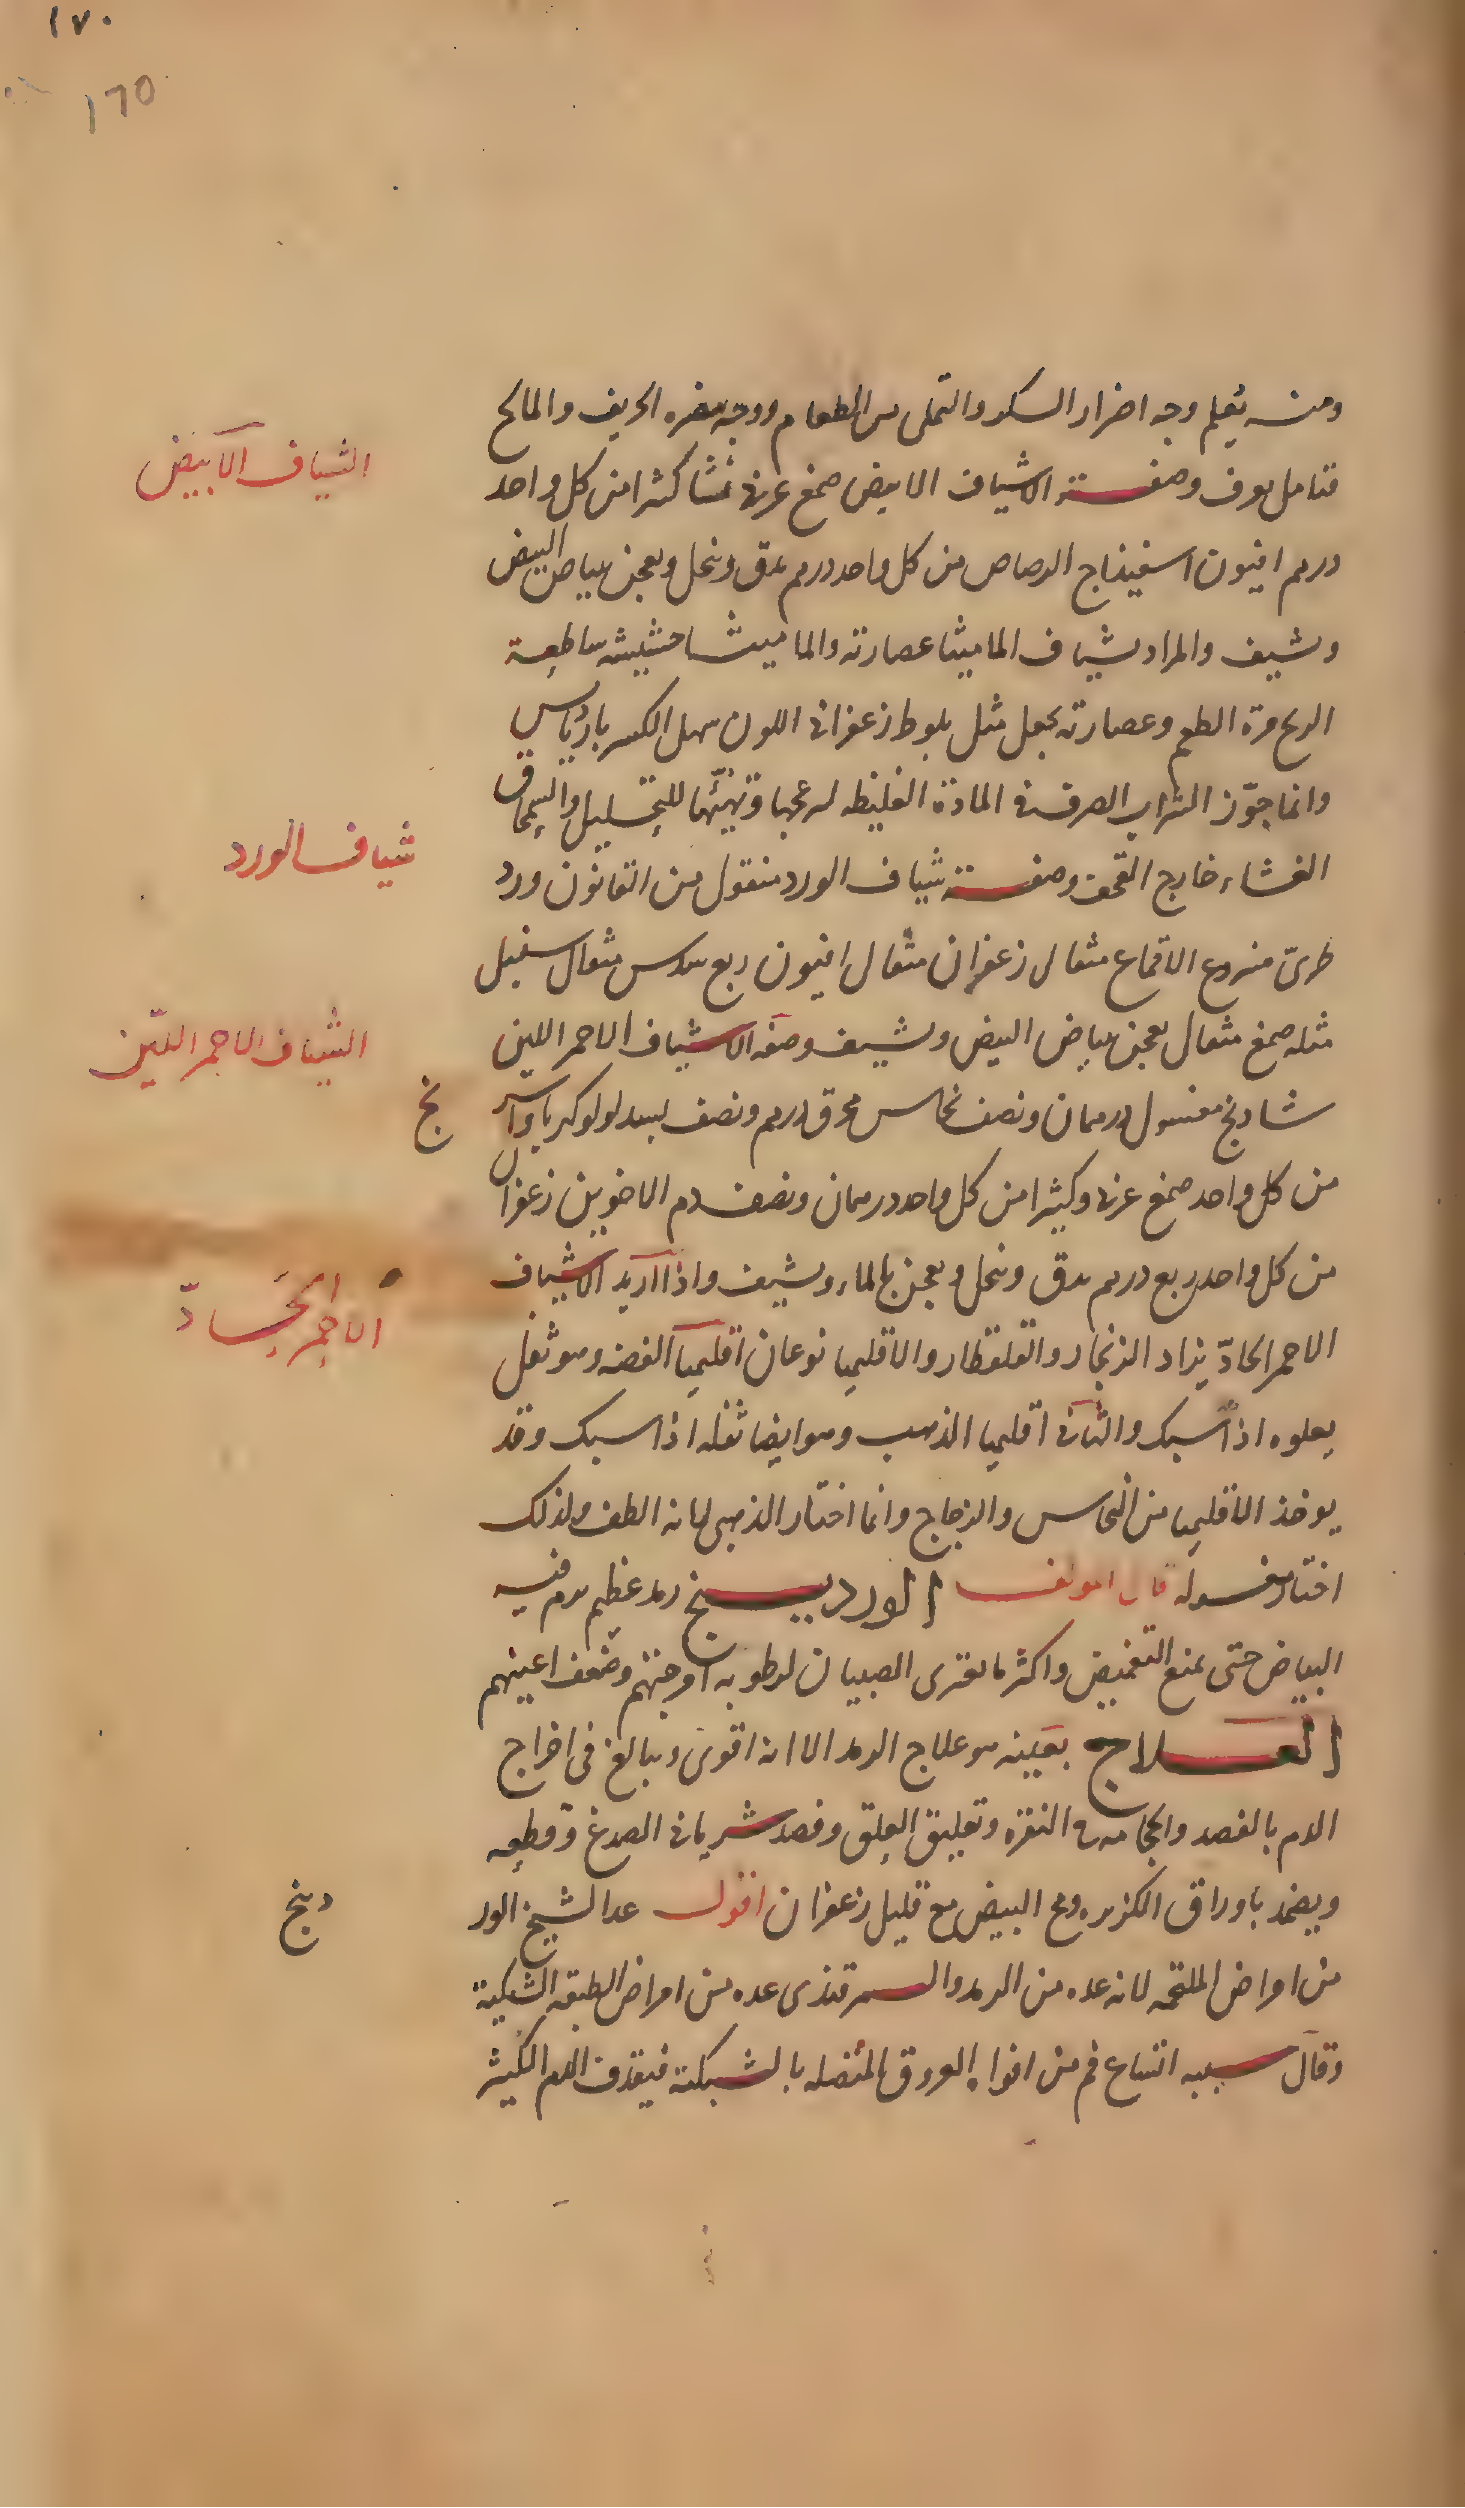 ١٧٠
١٦٥
ومنه يعلم وجه اضرار السكر والتملى من الطعام ووجه مضره الحريف والمالح
الشياف الابيض
فتامل تعرف وصفة الاشياف الابيض صمغ عربى نشا كثيرا من كل واحد
درهم افيون اسفيذاج الرصاص من كل واحد درهم يدق وينخل ويعجن ببياض البيض
ويشيف والمراد بشياف الماميثا عصارته والماميثا حشيشه ساطعة
الريح مرة الطعم وعصارته تجعل مثل بلوط زعفرانى اللون سهل الكسر
وانما جوز الشراب الصرف فى المادة الغليظه لي تهيئها للتحليل
شياف الورد
الغشاء خارج القحف وصفة شياف الورد منقول من القانون ورد
طرى منزوع الاقماع مثقال زعفران مثقال افيون ربع سدس مثقال سنبل
مثله صمغ مثقال يعجن ببياض البيض ويشيف وصفه الاشياف الاحمر اللين
الشياف الاحمر اللين
شادنج مغسول درهمان ونصف نحاس محرق درهم ونصف بسد لولو كهربا
نج
من كل واحد صمغ عربى وكثيرا من كل واحد درهمان ونصف دم الاخوين زعفران
من كل واحد ربع درهم يدق وينخل ويعجن بالماء ويشيف واذا اريد الاشياف
الاحمر الحاد
الاحمر الحاد يزاد الزنجار والقلقطار والاقليميا نوعان اقليميا الفضه وهو ثفل
يعلوه اذا سبك والثانى اقليميا الذهب وهو ايضا ثفله اذا سبك وقد
يوخذ الاقليميا من النحاس والزجاج وانما اختار الذهبى لانه الطف ولذلك
اختار مغسوله قال المولف الوردينج رمد عظيم يرم فيه
البياض حتى يمنع التغميض واكثر ما يعترى الصبيان لرطوبه امزجتهم وضعف اعينهم
العلاج بعينه هو علاج الرمد الا انه اقوى ويبالغ فى اخراج
الدم بالفصد والحجامه فى النقره وتعليق العلق وفصد شريانى الصدغ وقطعه
ويضمد باوراق الكزبره ومح البيض مع قليل زعفران اقول عد الشيخ الور
دينج
من امراض الملتحمه لانه عده من الرمد والسمرقندى عده من امراض الطبقه الشبكية
وقال سببه اتساع فم من افواه العروق المتصله بالشبكية فيقذف الدم الكثير